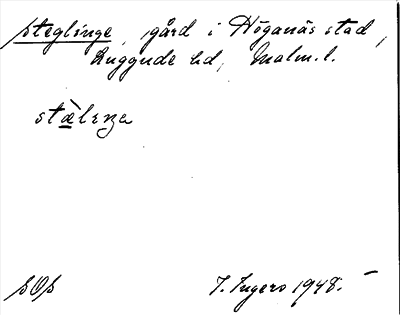 Steglinge, gård i Höganäs stad,
Luggude hd, Malm.l.
stæ̀lɛŋa
SOS
I. Ingers 1948.